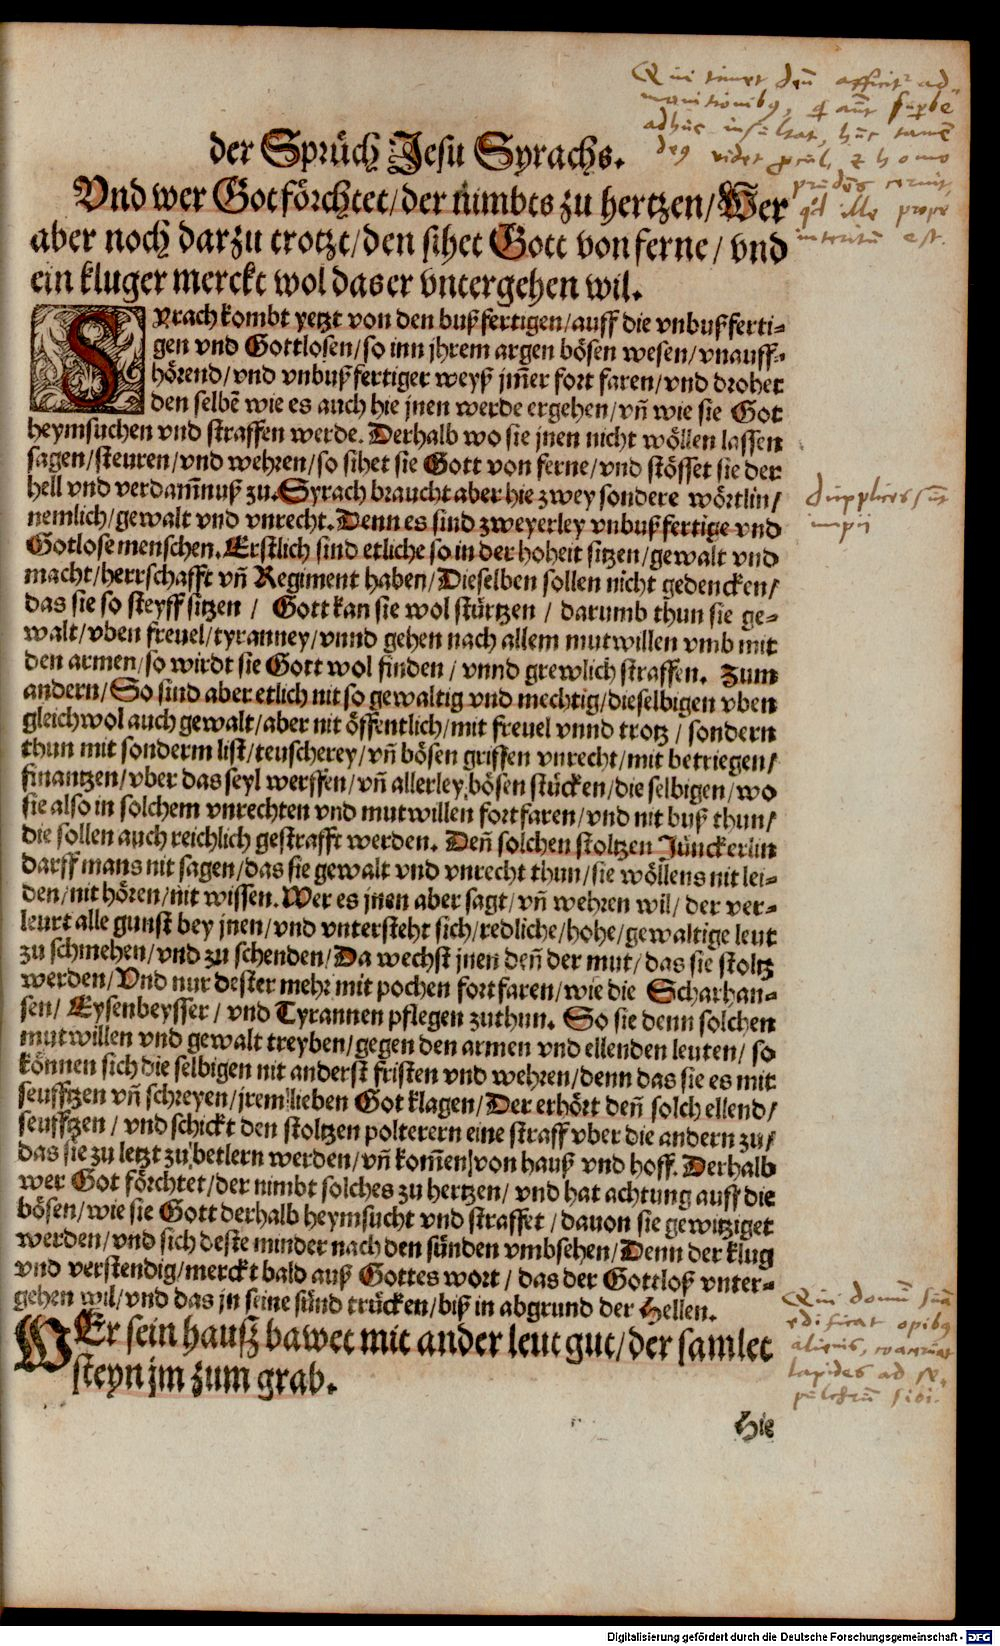 der Sprüch Jesu Syrachs.
Vnd wer Got förchtet/der nimbts zu hertzen/Wer
aber noch darzu trotzt/den sihet Gott von ferne/ vnd
ein kluger merckt wol das er vntergehen wil.
SYrach kombt yetzt von den bußfertigen/auff die vnbußferti-
gen vnd Gottlosen/so inn jhrem argen bösen wesen/vnauff-
hörend/vnd vnbußfertiger weyß jm̃er fort faren/vnd drohet
den selbẽ wie es auch hie jnen werde ergehen/vñ wie sie Got
heymsuchen vnd straffen werde. Derhalb wo sie jnen nicht wöllen lassen
sagen/steuren/vnd wehren/so sihet sie Gott von ferne/vnd stösset sie der
hell vnd verdam̃nuß zu. Syrach braucht aber hie zwey sondere wörtlin/
nemlich/gewalt vnd vnrecht. Denn es sind zweyerley vnbußfertige vnd
Gotlose menschen. Erstlich sind etliche so in der hoheit sitzen/gewalt vnd
macht/herrschafft vñ Regiment haben/Dieselben sollen nicht gedencken/
das sie so steyff sitzen / Gott kan sie wol stürtzen / darumb thun sie ge-
walt/vben freuel/tyranney/vnnd gehen nach allem mutwillen vmb mit
den armen/so wirdt sie Gott wol finden / vnnd grewlich straffen. Zum
andern/So sind aber etlich nit so gewaltig vnd mechtig/dieselbigen vben
gleichwol auch gewalt/aber nit öffentlich/mit freuel vnnd trotz / sondern
thun mit sonderm list/teuscherey/vñ bösen griffen vnrecht/mit betriegen/
finantzen/vber das seyl werffen/vñ allerley bösen stücken/die selbigen/wo
sie also in solchem vnrechten vnd mutwillen fort faren/vnd nit buß thun/
die sollen auch reichlich gestrafft werden. Deñ solchen stoltzen Jünckerlin
darff mans nit sagen/das sie gewalt vnd vnrecht thun/sie wöllens nit lei-
den/nit hören/nit wissen. Wer es jnen aber sagt/vñ wehren wil/ der ver-
leurt alle gunst bey jnen/vnd vntersteht sich/redliche/hohe/gewaltige leut
zu schmehen/vnd zu schenden/Da wechst jnen deñ der mut/das sie stoltz
werden/Vnd nur dester mehr mit pochen fort faren/wie die Scharhan-
sen/ Eysenbeysser / vnd Tyrannen pflegen zuthun. So sie denn solchen
mutwillen vnd gewalt treyben/gegen den armen vnd ellenden leuten/ so
können sich die selbigen nit anderst fristen vnd wehren/denn das sie es mit
seufftzen vñ schreyen/jrem lieben Got klagen/Der erhört deñ solch ellend/
seufftzen / vnd schickt den stoltzen polterern eine straff vber die andern zu/
das sie zu letzt zu betlern werden/vñ kom̃en von hauß vnd hoff. Derhalb
wer Got förchtet/der nimbt solches zu hertzen/ vnd hat achtung auff die
bösen/wie sie Gott derhalb heymsucht vnd straffet / dauon sie gewitziget
werden/vnd sich deste minder nach den sünden vmbsehen/Denn der klug
vnd verstendig/merckt bald auß Gottes wort / das der Gottloß vnter-
gehen wil/vnd das jn seine sünd trücken/biß in abgrund der Hellen.
WEr sein hausz bawet mit ander leut gut/der samlet
steyn jm zum grab.
Hie
Qui timet deũ afficit' ad-
monitionibꝯ, q̃ aũt superbe
adhuc insultat, hũc tamẽ
deꝯ videt procul, & homo
prudẽs cernit,
qd ille prope
interitũ est.
dupplices sũt
impii
Qui domũ suã
edificat opibꝯ
alienis, coaceruat
lapides ad se-
pulchrũ sibi.
Digitalisierung gefördert durch die Deutsche Forschungsgemeinschaft - DFG